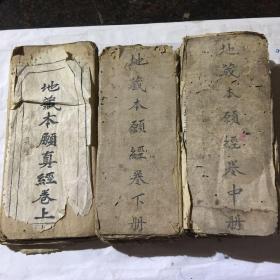 地藏本願真經卷上
地藏本願經卷下册
地藏本願經卷中册